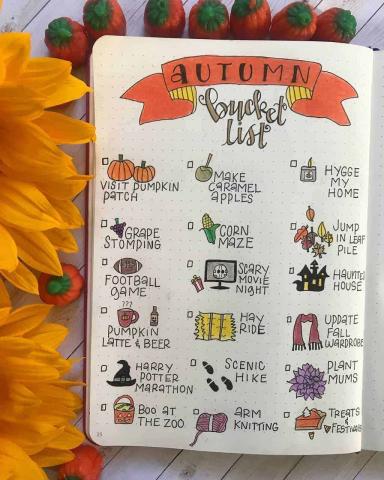 AUTUMN
bucket
list
VISIT PUMPKIN
PATCH
MAKE
CARAMEL
APPLES
HYGGE
MY
HOME
GRAPE
STOMPING
CORN
MAZE
JUMP
IN LEAF
PILE
FOOTBALL
GAME
SCARY
MOVIE
NIGHT
HAUNTED
HOUSE
???
PUMPKIN
LATTE & BEER
HAY
RIDE
UPDATE
FALL
WARDROBE
HARRY
POTTER
MARATHON
SCENIC
HIKE
PLANT
MUMS
BOO AT
THE ZOO
ARM
KNITTING
TREATS
& FESTIVALS